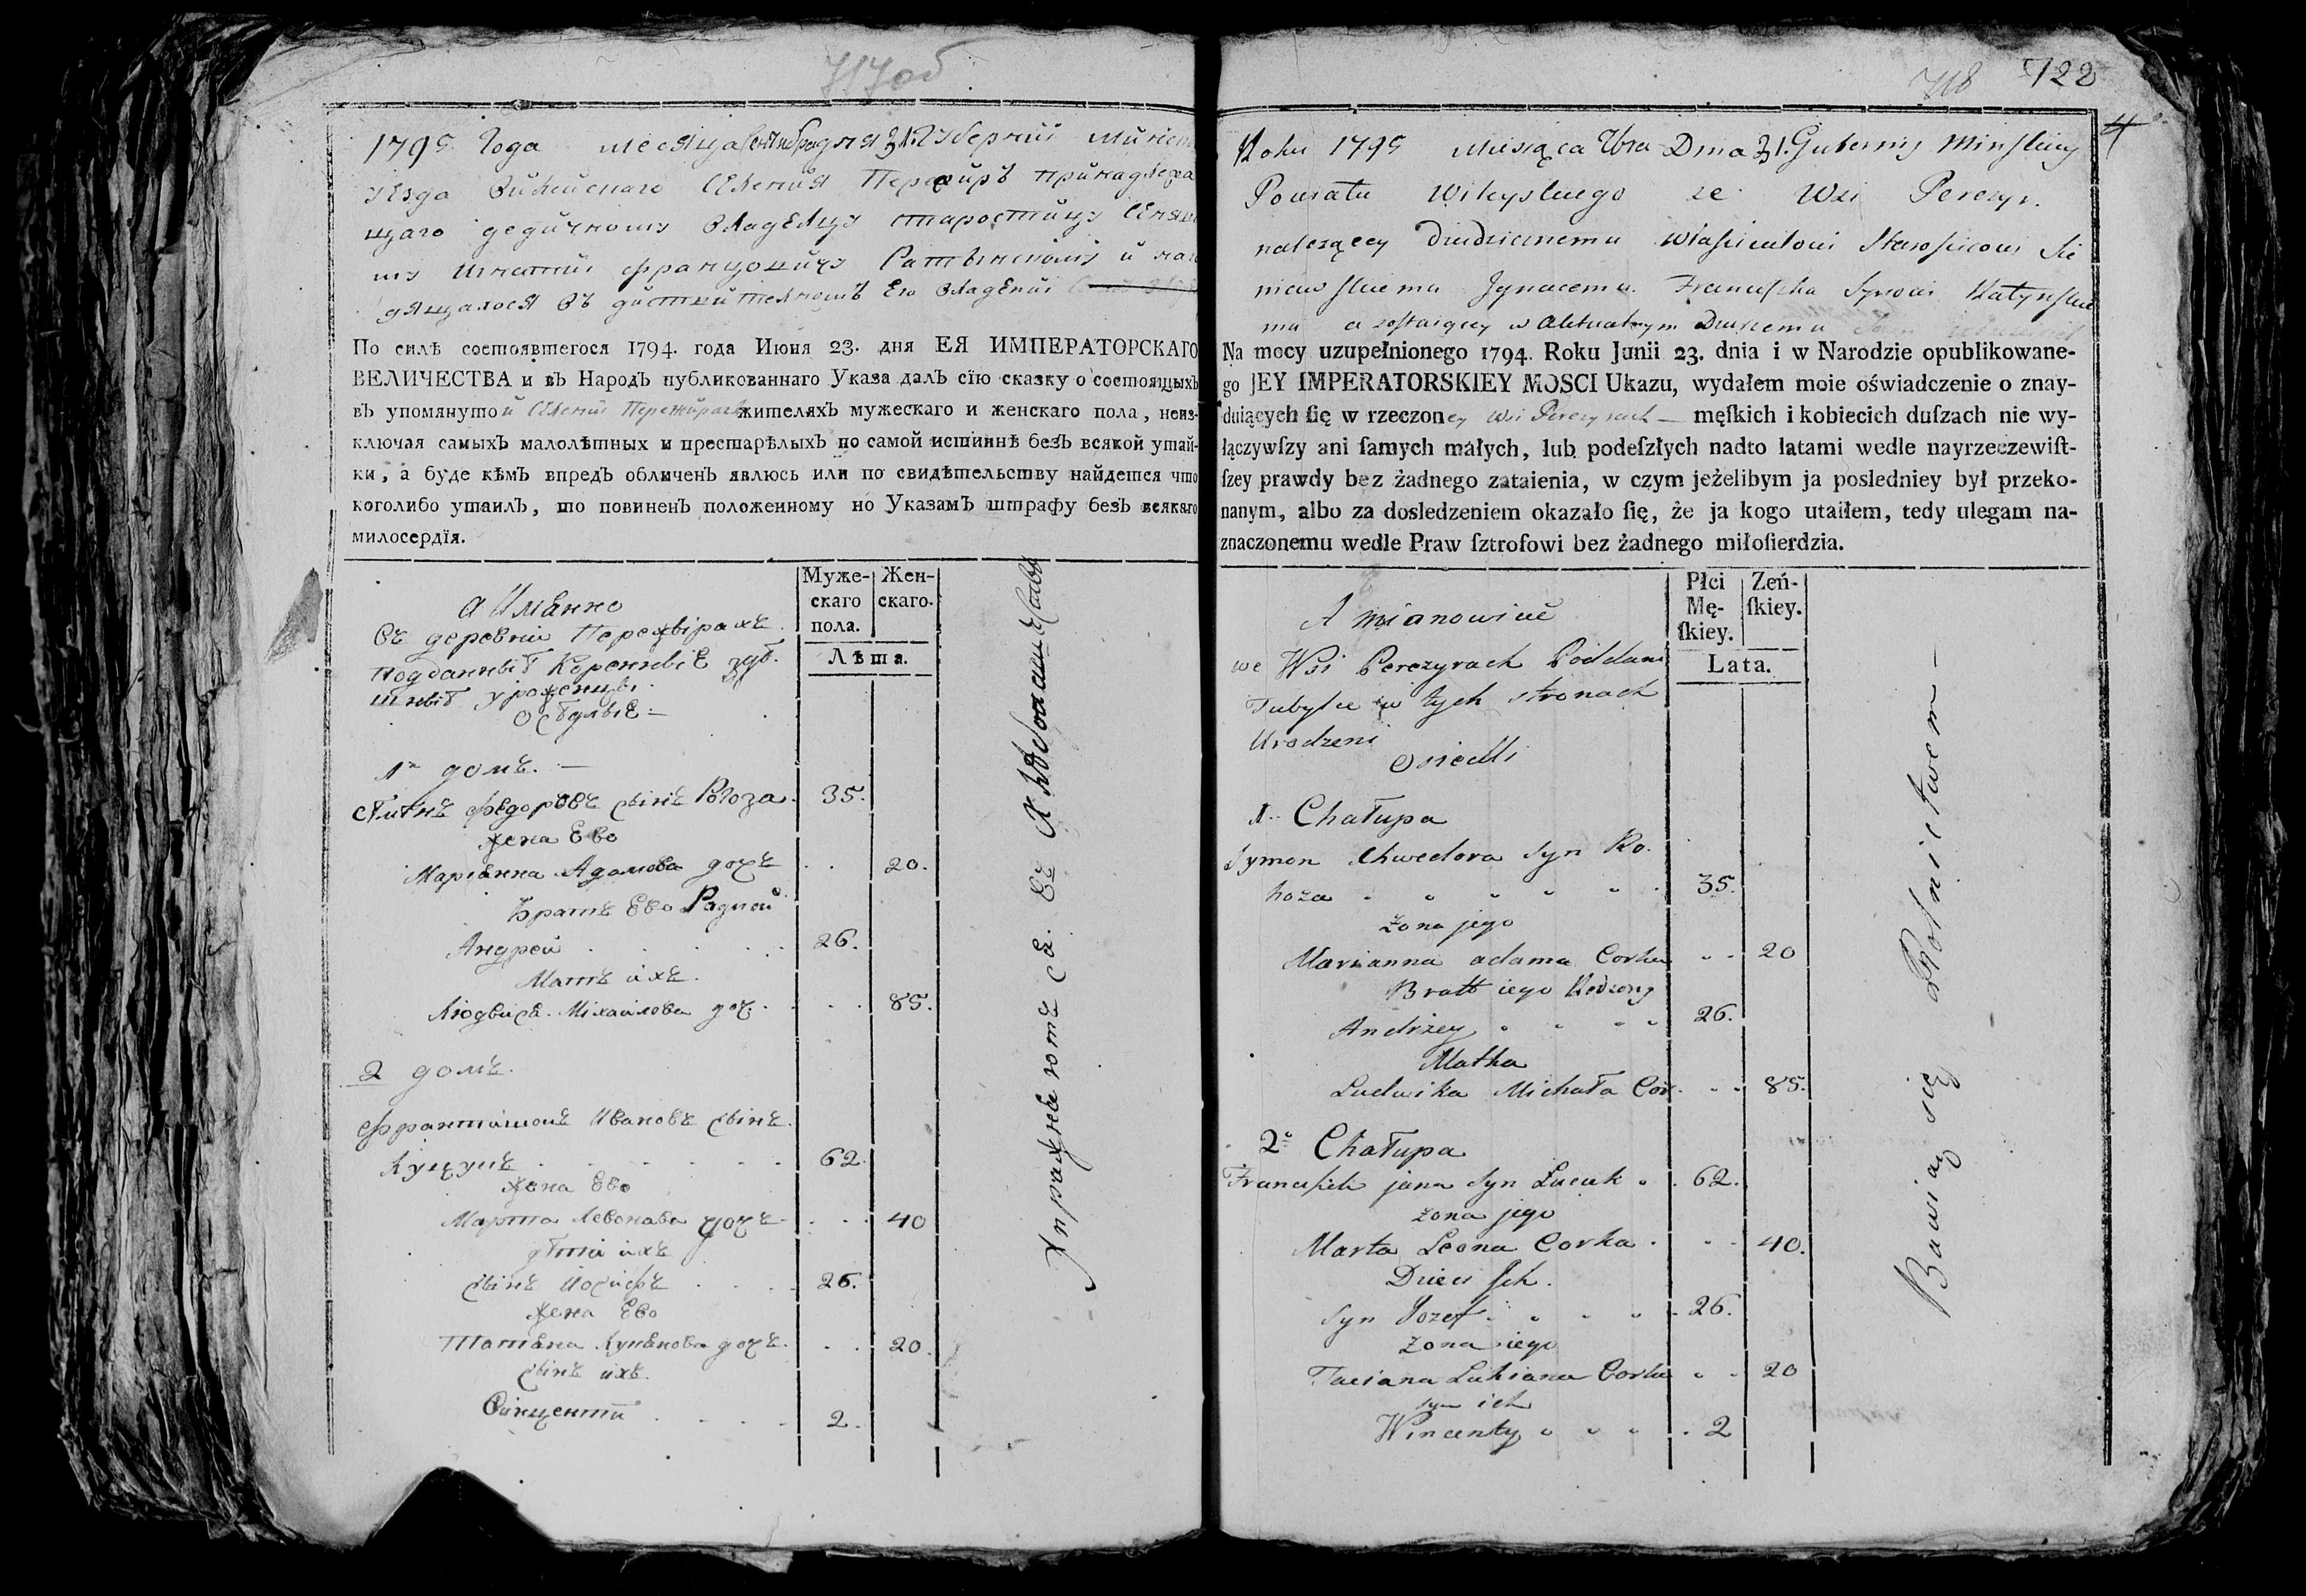 717об
1795 Года месяца Сентября дня 31 Губернии Минск
уезда Вилейскаго селения Пережиръ принадлежа
щаго дедичному владелцу старостицу
Игнатию Францовичу и нахо
дящагося въ действителномъ его владении
По силѣ состоявшегося 1794. года Июня 23. дня ЕЯ ИМПЕРАТОРСКАГО
ВЕЛИЧЕСТВА и въ Народъ публикованнаго Указа далъ сїю сказку о состоящихъ
въ упомянутой селении Пережирахъ жителяхъ мужескаго и женскаго пола, неиз-
ключая самыхъ малолѣтныхъ и престарѣлыхъ по самой истиннѣ безъ всякой утай-
ки, а буде кѣмъ впредъ обличенъ явлюсь или по свидѣтельству найдется что
коголибо утаилъ, то повиненъ положенному по Указамъ штрафу безъ всякаго
милосердїя.
Муже-
скаго
пола.
Жен-
скаго.
Лѣта.
а Имянно
въ деревни Пережирахъ
подданные коренные зде
шние уроженцы
оселые
1 домъ.
Фёдоровъ сынъ Рогоза 35.
жена Ево
Марянна Адамова дочь 20.
Братъ Ево Радной
Андрей 26.
Мать ихъ
Людвися Михаилова доч. 85.
2 домъ.
Францишекъ Ивановъ сынъ
Луцукъ 62.
жена Ево
Марта Левонава дочь 40
дети ихъ
сынъ Иосифъ 26.
жена Ево
Татяна Лукянова дочь 20.
сынъ ихъ
Винценти 2.
Упражняются въ Хлебопашестве
718 722
4
Roku 1795 Miesiąca 7bra Dnia 31. Gubernij Minskiey
Powiatu Wileyskiego ze Wsi Perezyr.
należącey Dziedzicznemu Właścicielowi Starościcowi Sie
niawskiemu Ignacemu Franciszka Synowi Ratynskie
mu a zostaiącey w Aktualnym
Na mocy uzupełnionego 1794. Roku Junii 23. dnia i w Narodzie opublikowane-
go JEY IMPERATORSKIEY MOSCI Ukazu, wydałem moie oświadczenie o znay-
duiących ſię w rzeczoney Wsi Perezyrach męſkich i kobiecich duſzach nie wy-
łączywſzy ani ſamych małych, lub podeſzłych nadto latami wedle nayrzeczewiſt-
ſzey prawdy bez żadnego zataienia, w czym jeżelibym ja posledniey był przeko-
nanym, albo za dosledzeniem okazało ſię, że ja kogo utaiłem, tedy ulegam na-
znaczonemu wedle Praw ſztrofowi bez żadnego miłoſierdzia.
Płci
Mę-
ſkiey.
Zeń-
ſkiey.
Lata.
A mianowicie
we Wsi Perezyrach Poddani
Tubylce w tych stronach
Urodzeni
Osiedli
1. Chałupa
Symon Chwedora Syn Ro.
hoza 35.
żona jego
Marianna adama Corka 20
Bratt iego Rodzony
Andrzey 26.
Matka
Ludwika Michała Cor. 85.
2. Chałupa
Franciszek jana Syn Lucuk 62.
żona jego
Marta Leona Corka 40.
Dzieci Ich.
Syn Jozef 26.
żona iego
Taciana Lukiana Corka 20
syn ich
Wincenty 2
Bawią się Rolnictwem